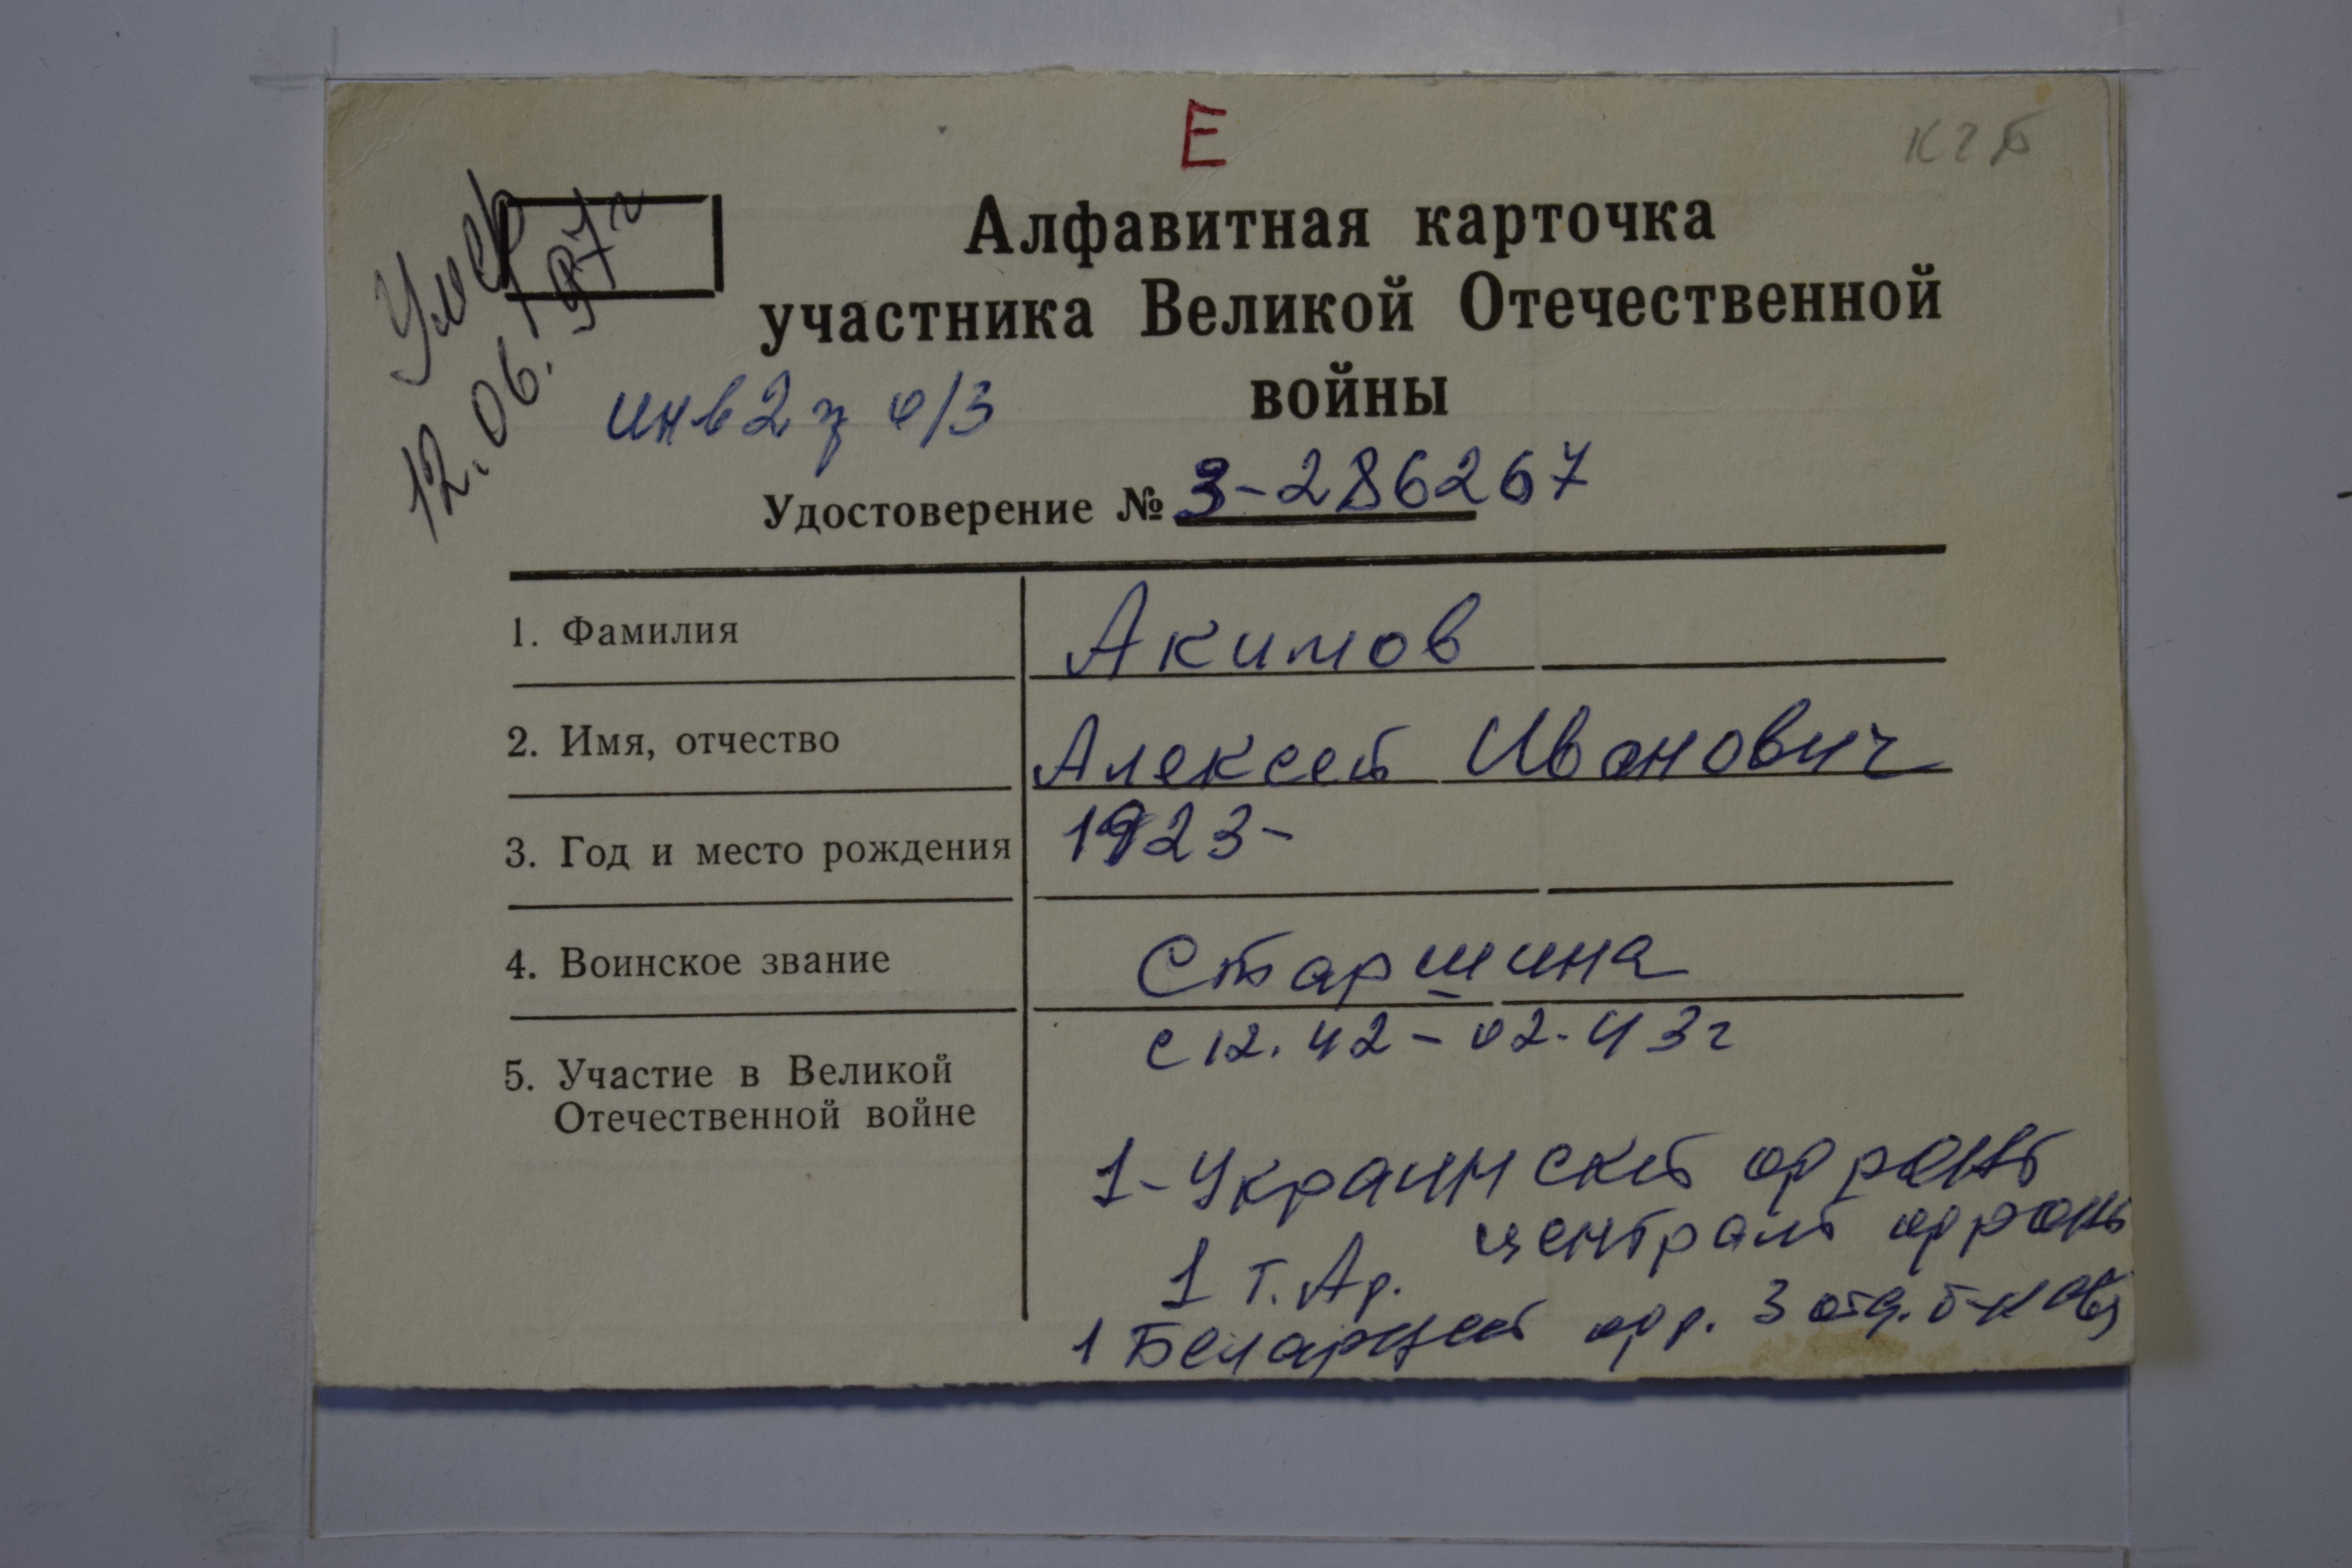 Е
кгб
Умер
12.06.97г
Алфавитная карточка
участника Великой Отечественной
войны
инв 2 г о/з
Удостоверение № 3-286267
1. Фамилия Акимов
2. Имя, отчество Алексей Иванович
3. Год и место рождения 1923-
4. Воинское звание Старшина
5. Участие в Великой Отечественной войне
с 12.42-02.43г
1-Украинский фронт
централ фронт
1 т. Ар.
1 фр. 3 отд.